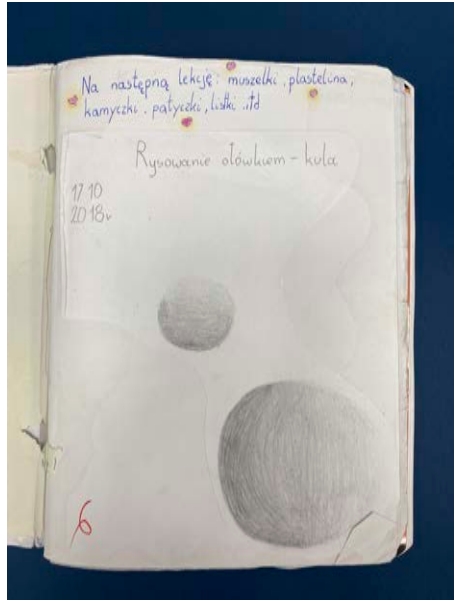 Na następną lekcję: muszelki, plastelina,
kamyczki, patyczki, listki itd
Rysowanie ołówkiem - kula
17.10
2018r
6